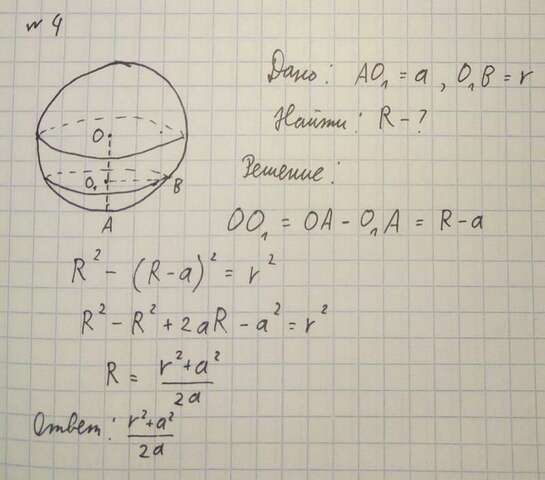 № 4
Дано: AO₁ = a, O₁B = r
Найти: R - ?
Решение:
O
O₁
B
A
OO₁ = OA - O₁A = R - a
R² - (R-a)² = r²
R² - R² + 2aR - a² = r²
R = (r² + a²)/2a
Ответ: (r² + a²)/2a